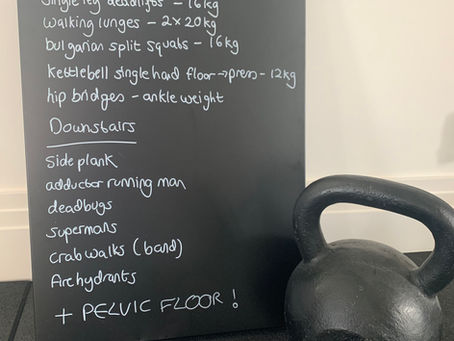 Single leg deadlifts - 16kg
walking lunges - 2x20kg
bulgarian split squats - 16kg
kettlebell single hand floor → press - 12kg
hip bridges - ankle weight
Downstairs
Side plank
adductor running man
deadbugs
supermans
crab walks (band)
Arc hydrants
+ PELVIC FLOOR !